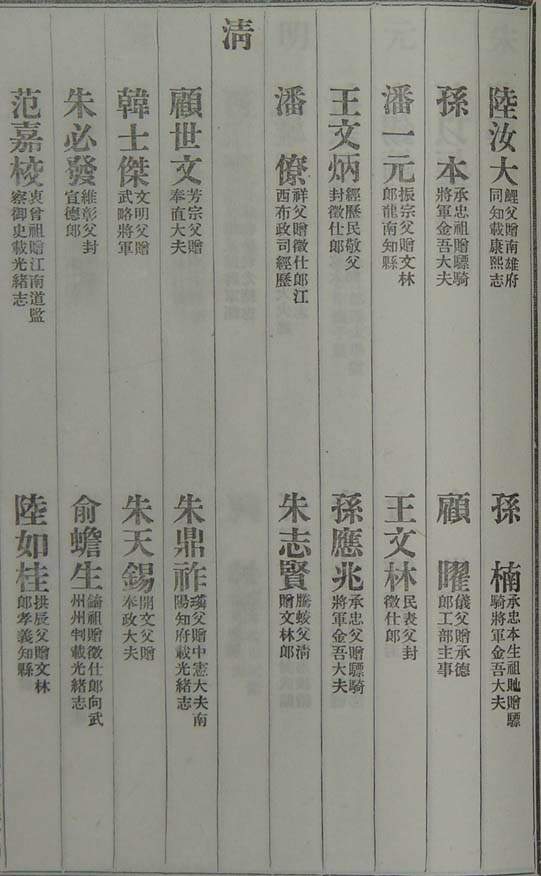 陸汝大 鯉父贈南雄府同知載康熙志
孫楠 承忠本生祖貤贈驃騎將軍金吾大夫
孫本 承忠祖贈驃騎將軍金吾大夫
顧曜 儀父贈承德郎工部主事
潘一元 振宗父贈文林郎龍南知縣
王文林 民表父封徵仕郎
王文炳 經歷民敬父封徵仕郎
孫應兆 承忠父贈驃騎將軍金吾大夫
潘僚 祥父贈徵仕郎江西布政司經歷
朱志賢 騰蛟父清贈文林郎
清
顧世文 芳宗父贈奉直大夫
朱鼎祚 父贈中憲大夫南陽知府載光緒志
韓士傑 文明父贈武略將軍
朱天錫 開文父贈奉政大夫
朱必發 維彰父封宣德郎
俞蟾生 祖贈徵仕郎向武州州判載光緒志
范嘉校 衷曾祖贈江南道監察御史載光緒志
陸如桂 拱辰父贈文林郎孝義知縣